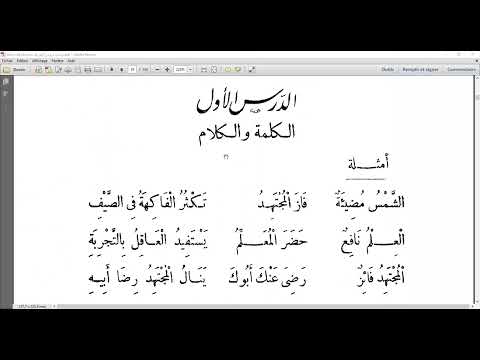 Fichier Edition Affichage Fenêtre Aide
Ouvrir
Outils Remplir et signer Commentaires
الدّرس الأول
الكلمة والكلام
أمثلة
الشَّمْسُ مُضِيئَةٌ فَازَ الْمُجْتَهِدُ تَكْثُرُ الْفَاكِهَةُ فِى الصَّيْفِ
الْعِلْمُ نَافِعٌ حَضَرَ الْمُعَلِّمُ يَسْتَفِيدُ الْعَاقِلُ بِالتَّجْرِبَةِ
الْمُجْتَهِدُ فَائِزٌ رَضِىَ عَنْكَ أَبُوكَ يَنَالُ الْمُجْتَهِدُ رِضَا أَبِيهِ